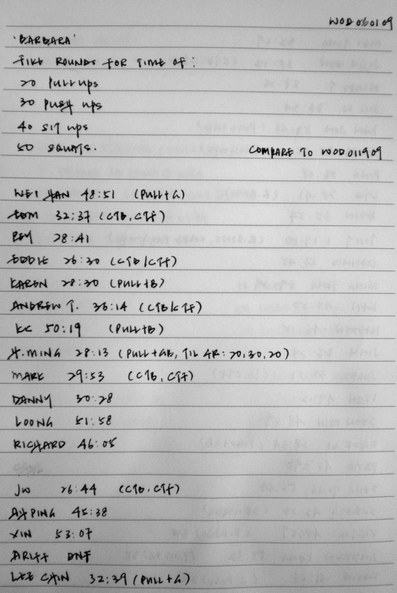 WOD 060109
'BARBARA'
FIVE ROUNDS FOR TIME OF:
20 PULL UPS
30 PUSH UPS
40 SIT UPS
50 SQUATS.
COMPARE TO WOD 011909
WEI HAN 48:51 (PULL+G)
TOM 32:37 (CTB, CTF)
REY 28:41
EDDIE 26:30 (CTB/CTF)
KAREN 28:30 (PULL+B)
ANDREW T. 36:14 (CTB/CTF)
KC 50:19 (PULL+B)
H.MING 28:13 (PULL+GB, TIL 4R: 20,30,20)
MARK 29:53 (CTB, CTF)
DANNY 30:28
LOONG 51:58
RICHARD 46:05
JW 26:44 (CTB, CTF)
AH PING 45:38
XIN 53:07
DNF
LEE CHIN 32:39 (PULL+G)